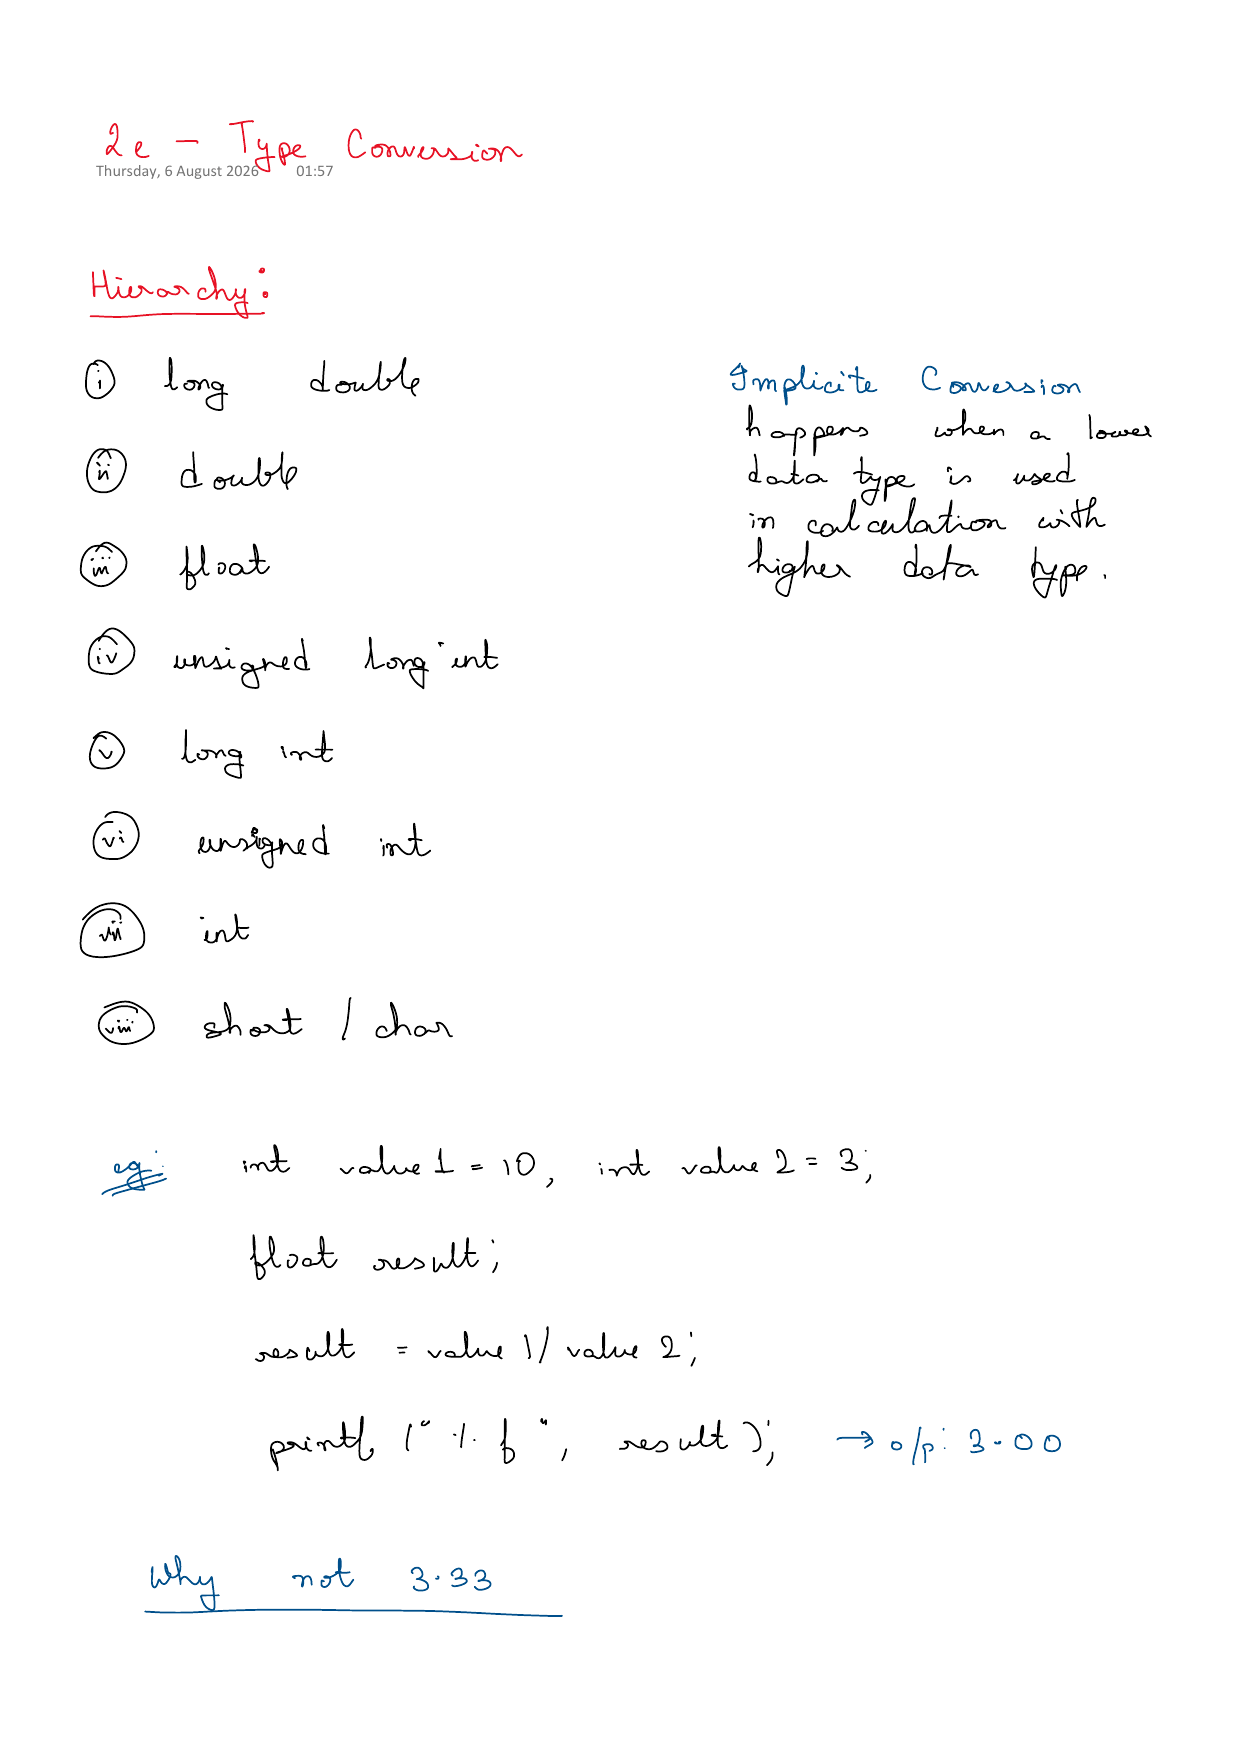 2e - Type Conversion
Thursday, 6 August 2026 01:57
Hierarchy:
i long double
ii double
iii float
iv unsigned long int
v long int
vi unsigned int
vii int
viii short / char
Implicite Conversion
happens when a lower
data type is used
in calculation with
higher data type.
eg: int value 1 = 10, int value 2 = 3;
float result;
result = value 1/ value 2;
printf ("%f", result); → o/p: 3.00
Why not 3.33